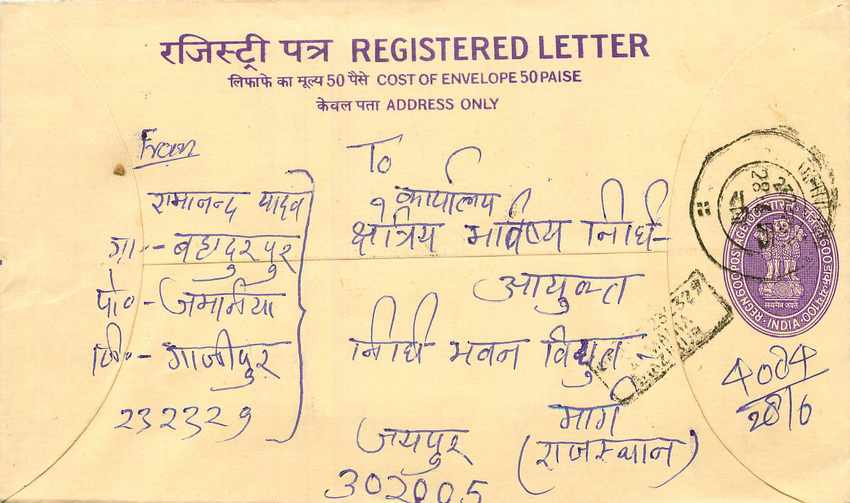 रजिस्ट्री पत्र REGISTERED LETTER
लिफाफे का मूल्य 50 पैसे COST OF ENVELOPE 50 PAISE
केवल पता ADDRESS ONLY
From
रामानन्द यादव
ग्रा०-बहादुरपुर
पो०-जमानिया
जि०-गाजीपुर
232329
To
कार्यालय
क्षत्रिय भविष्य निधि-
आयुक्त
निधी भवन विद्युत-
मार्ग
जयपुर (राजस्थान)
302005
INDIA
सत्यमेव जयते
4084
28/6